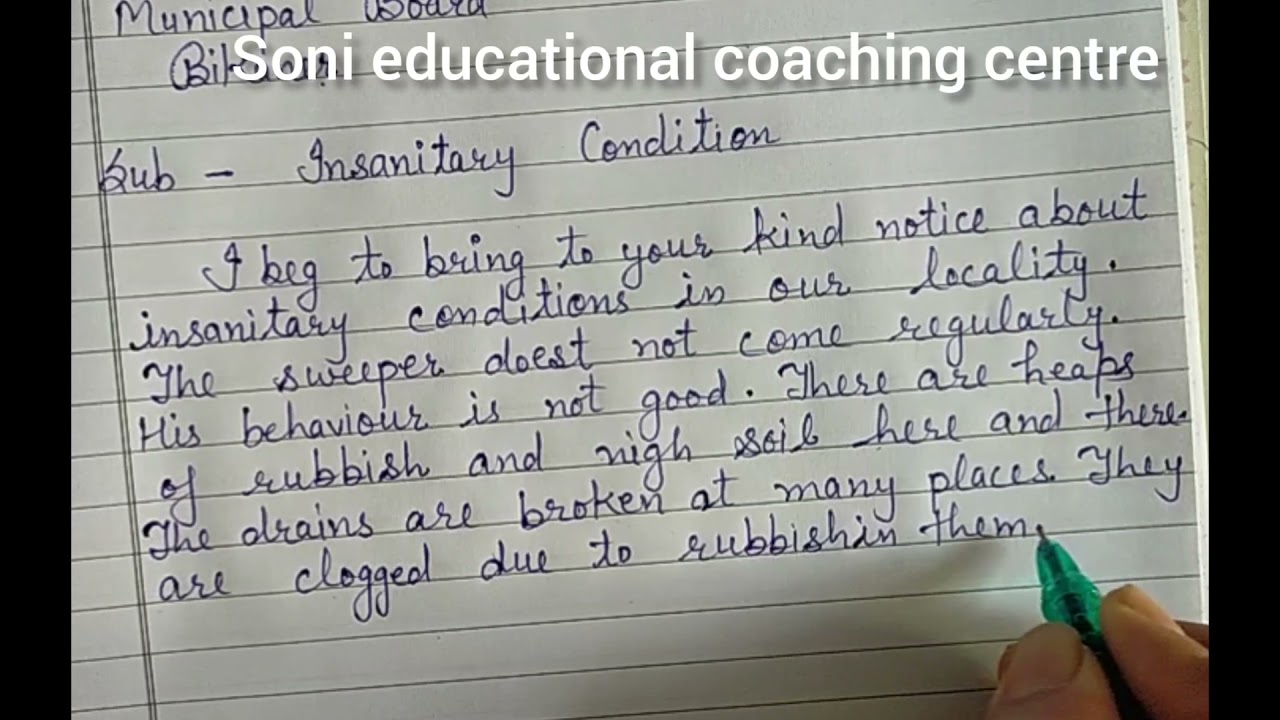 Municipal Board
Soni educational coaching centre
Sub - Insanitary Condition
I beg to bring to your kind notice about
insanitary conditions in our locality.
The sweeper doest not come regularly.
His behaviour is not good. There are heaps
of rubbish and nigh soil here and there.
The drains are broken at many places. They
are clogged due to rubbishin them.